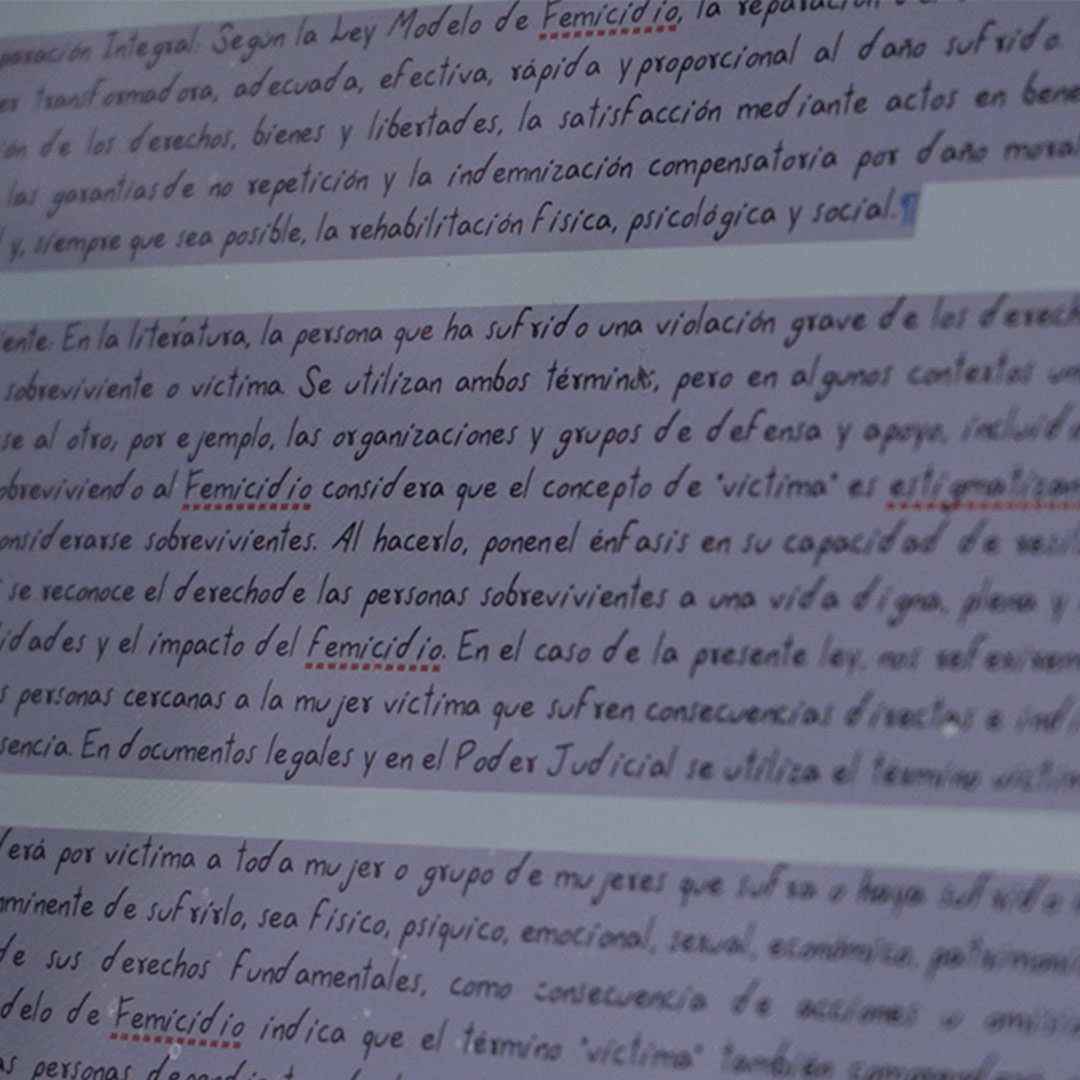 Integral. Según la Ley Modelo de Femicidio, la
transformadora, adecuada, efectiva, rápida y proporcional al daño sufrido
de los derechos, bienes y libertades, la satisfacción mediante actos en
las garantías de no repetición y la indemnización compensatoria por daño
y, siempre que sea posible, la rehabilitación física, psicológica y social.¶
En la literatura, la persona que ha sufrido una violación grave de los
sobreviviente o víctima. Se utilizan ambos términos, pero en algunos contextos
se al otro, por ejemplo, las organizaciones y grupos de defensa y apoyo,
al Femicidio considera que el concepto de "víctima" es
sobrevivientes. Al hacerlo, ponen el énfasis en su capacidad de
se reconoce el derecho de las personas sobrevivientes a una vida digna, plena y
y el impacto del femicidio. En el caso de la presente ley,
personas cercanas a la mujer víctima que sufren consecuencias directas e
En documentos legales y en el Poder Judicial se utiliza el término
por víctima a toda mujer o grupo de mujeres que sufra o haya sufrido
de sufrirlo, sea físico, psíquico, emocional, sexual, económico,
de sus derechos fundamentales, como consecuencia de acciones u
de Femicidio indica que el término "víctima" también
personas